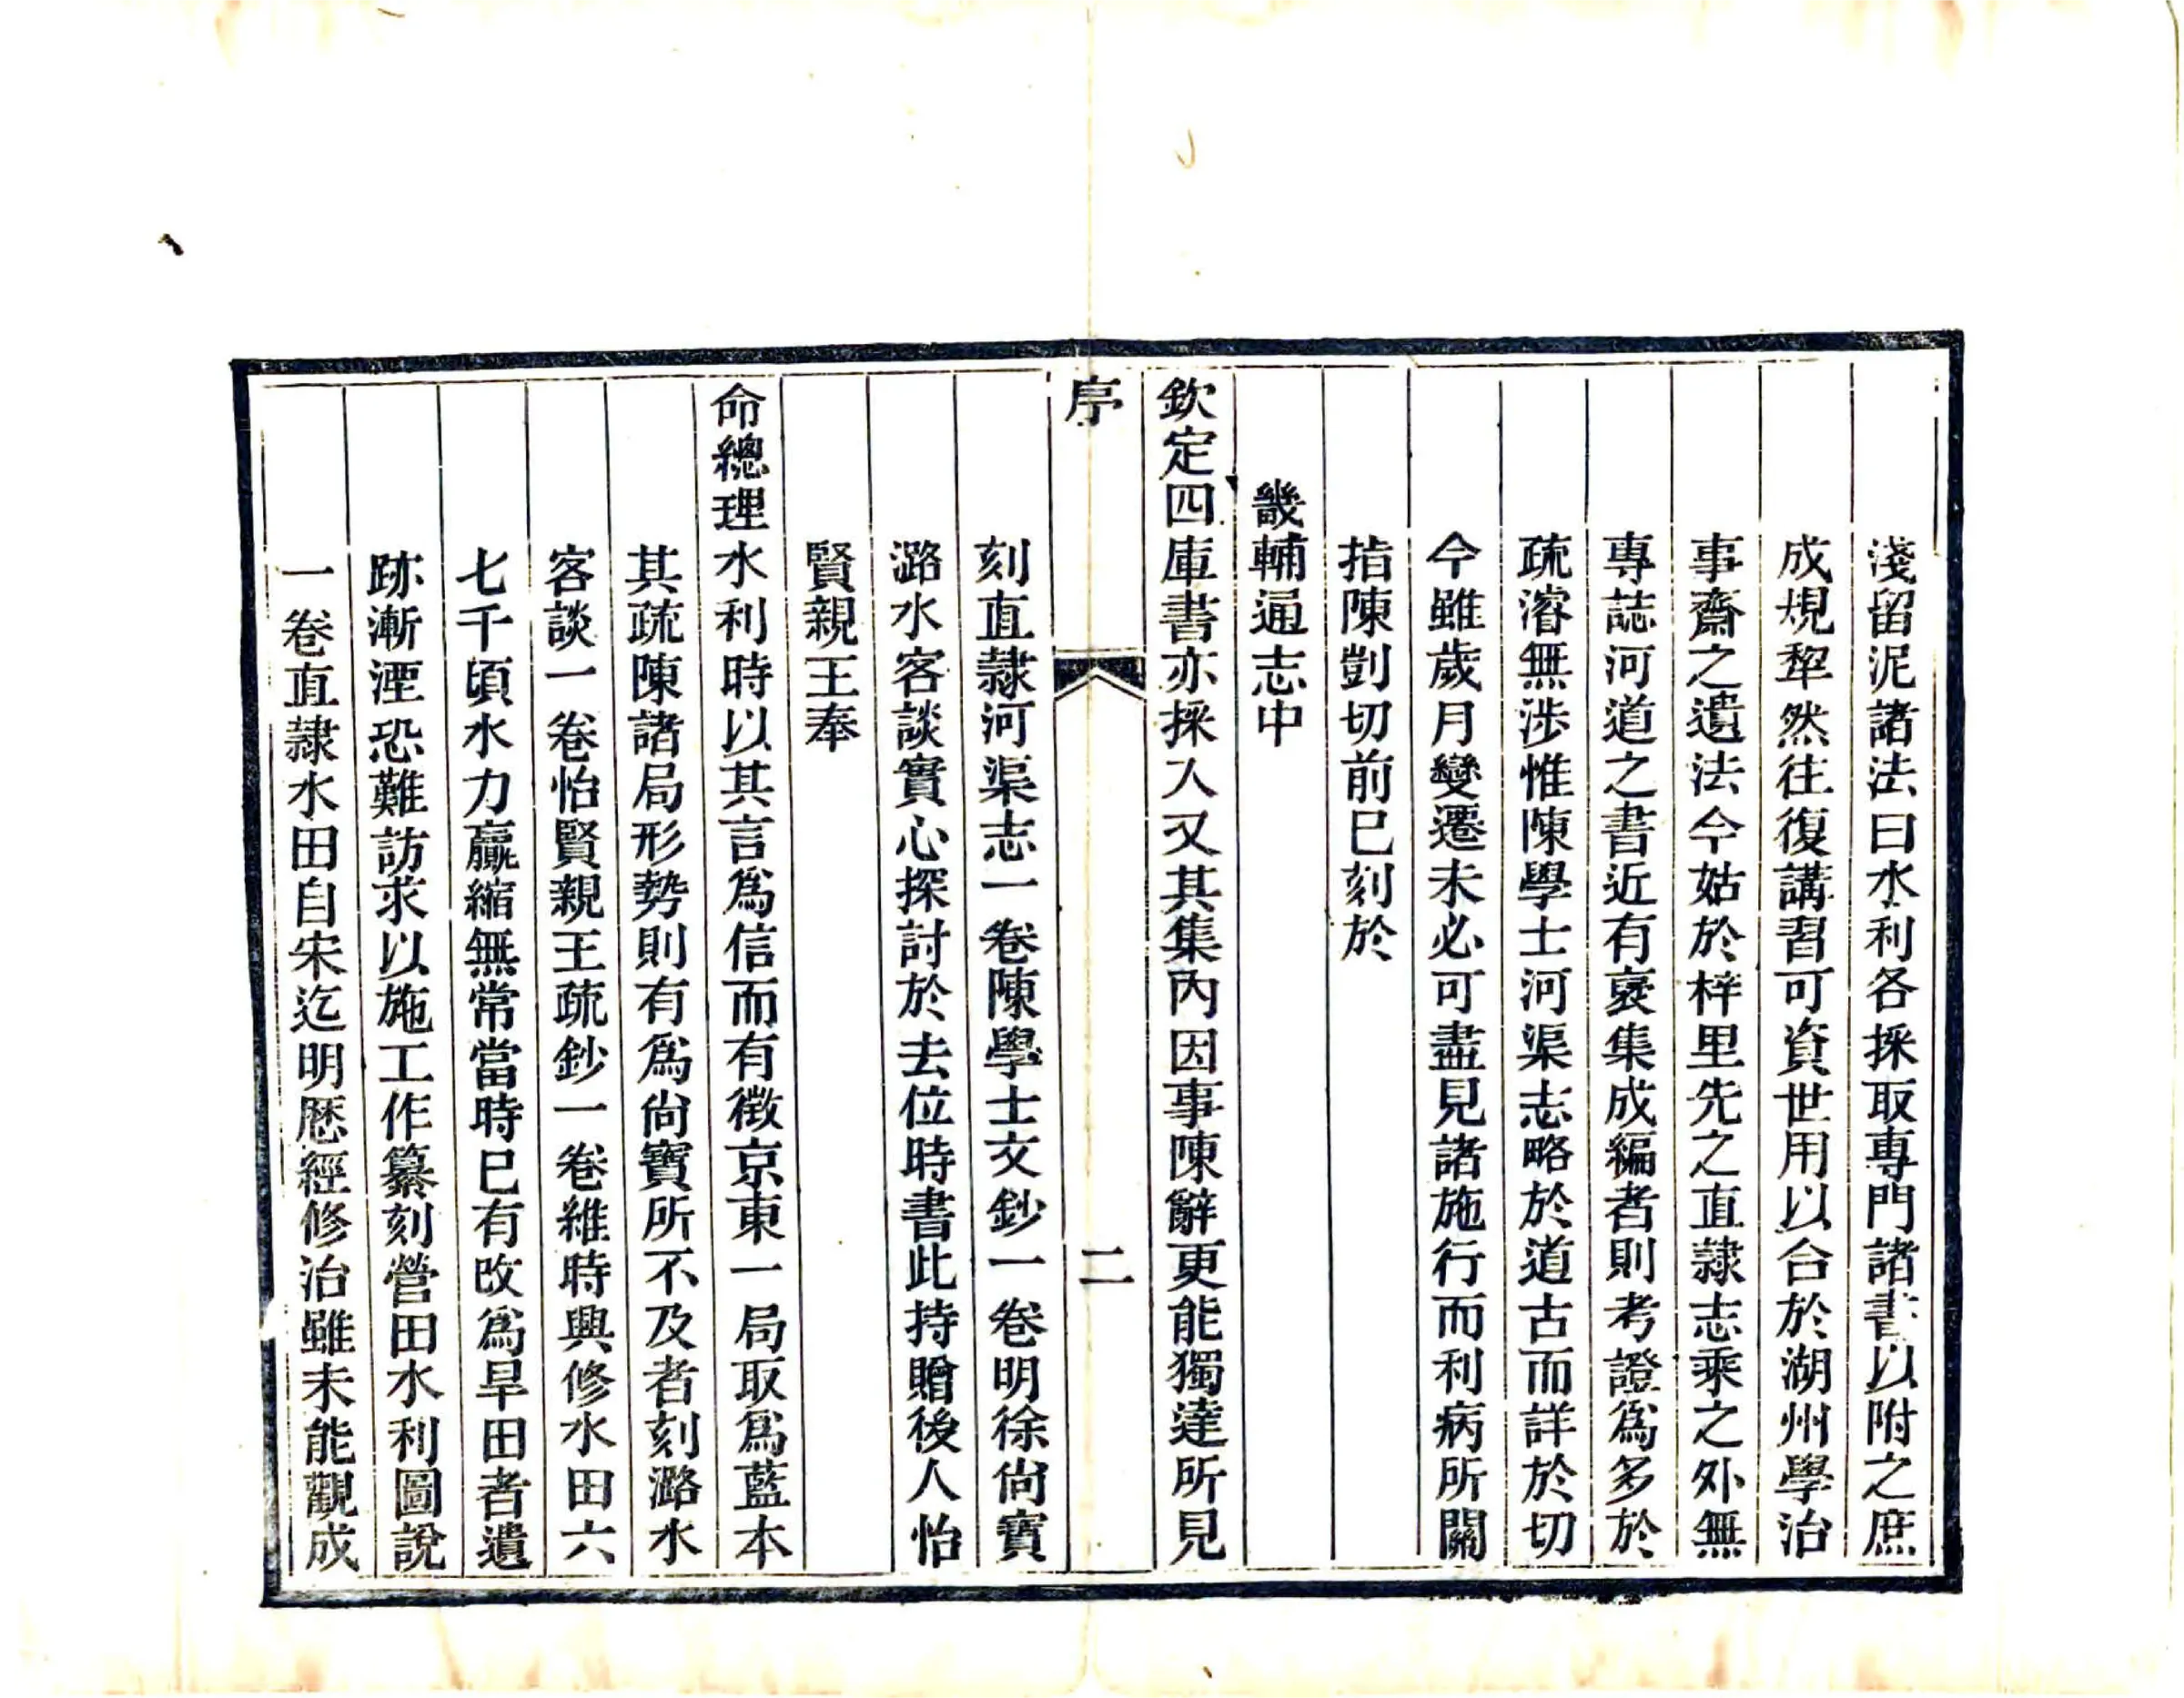 淺留泥諸法曰水利各採取專門諸書以附之庶
成規犂然往復講習可資世用以合於湖州學治
事齋之遺法今姑於梓里先之直隸志乘之外無
專誌河道之書近有裒集成編者則考證爲多於
疏濬無涉惟陳學士河渠志略於道古而詳於切
今雖歲月變遷未必可盡見諸施行而利病所關
指陳剴切前已刻於
畿輔通志中
欽定四庫書亦採入又其集內因事陳辭更能獨達所見
序
二
刻直隸河渠志一卷陳學士文鈔一卷明徐尙寶
潞水客談實心探討於去位時書此持贈後人怡
賢親王奉
命總理水利時以其言爲信而有徵京東一局取爲藍本
其疏陳諸局形勢則有爲尙寶所不及者刻潞水
客談一卷怡賢親王疏鈔一卷維時興修水田六
七千頃水力贏縮無常當時已有改爲旱田者遺
跡漸湮恐難訪求以施工作纂刻營田水利圖說
一卷直隸水田自宋迄明歷經修治雖未能觀成